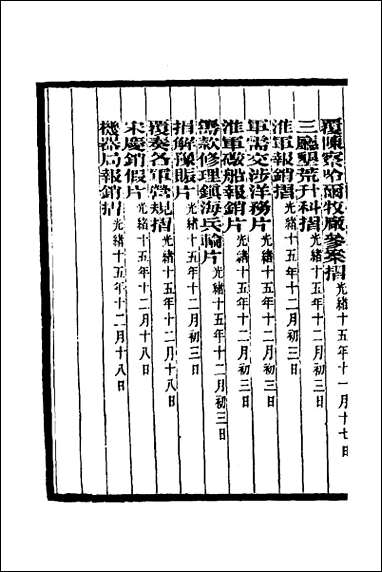 覆陳察哈爾牧廠參案摺光緒十五年十一月十七日
三廳墾荒升科摺光緒十五年十二月初三日
淮軍報銷摺光緒十五年十二月初三日
軍需交涉洋務片光緒十五年十二月初三日
淮軍礮船報銷片光緒十五年十二月初三日
籌款修理鎮海兵輪片光緒十五年十二月初三日
捐解豫賑片光緒十五年十二月初三日
覆奏各軍營規摺光緒十五年十二月十八日
宋慶銷假片光緒十五年十二月十八日
機器局報銷摺光緒十五年十二月十八日